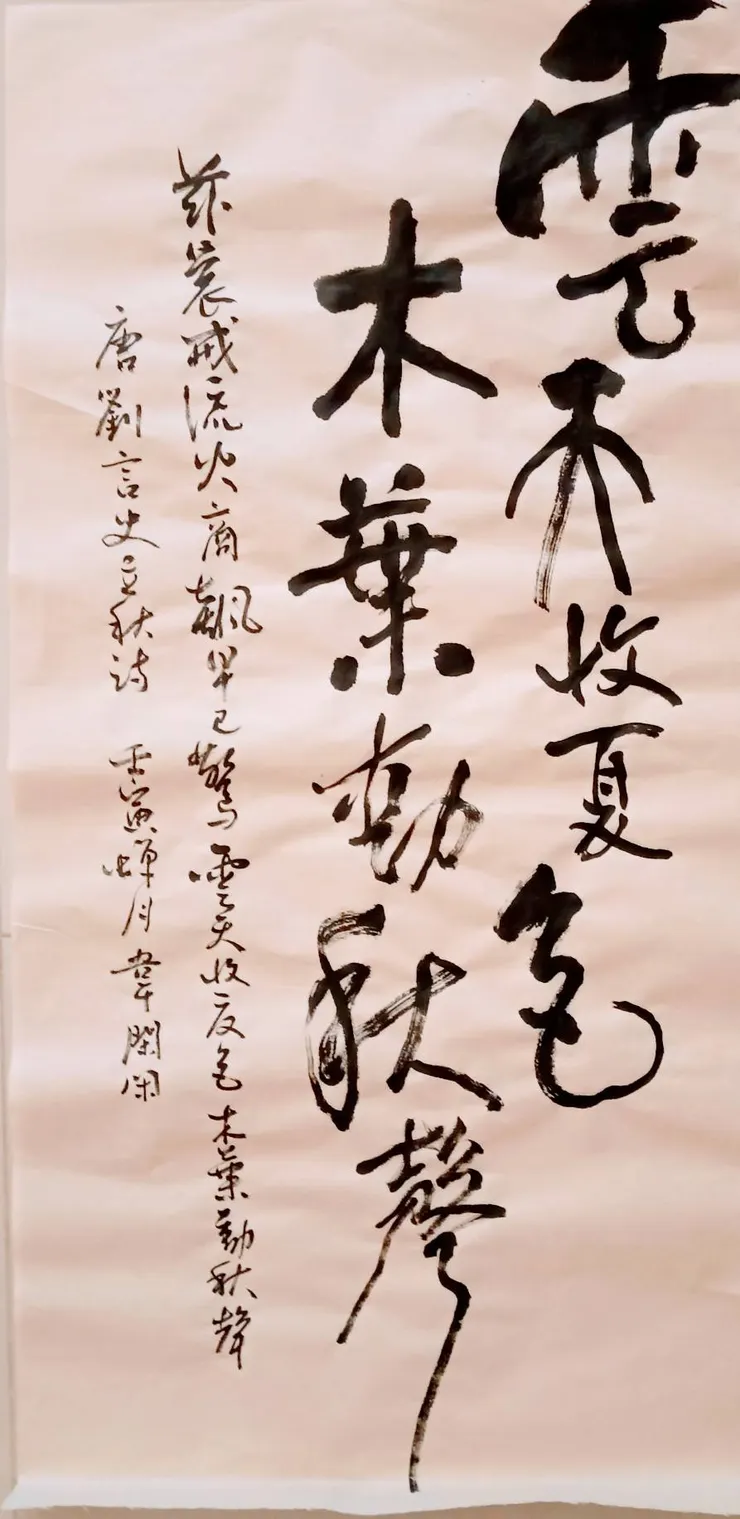 雲天收夏色
木葉動秋聲
茲晨戒流火 商飆早已驚 雲天收夏色 木葉動秋聲
唐劉言史立秋詩 壬寅蟬月韋閑閑